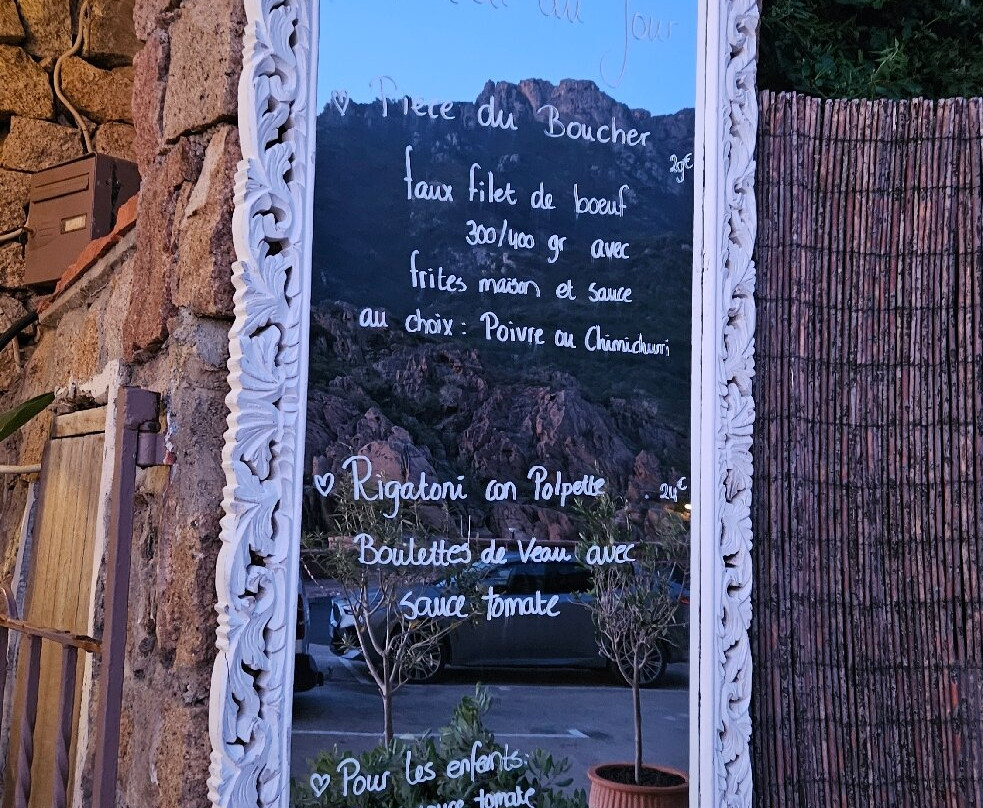 au Jour
♡ Pièce du Boucher
29€
faux filet de boeuf
300/400 gr avec
frites maison et sauce
au choix: Poivre ou Chimichurri
♡ Rigatoni con Polpette . 24€
Boulettes de Veau avec
sauce tomate
♡ Pour les enfants:
sauce tomate